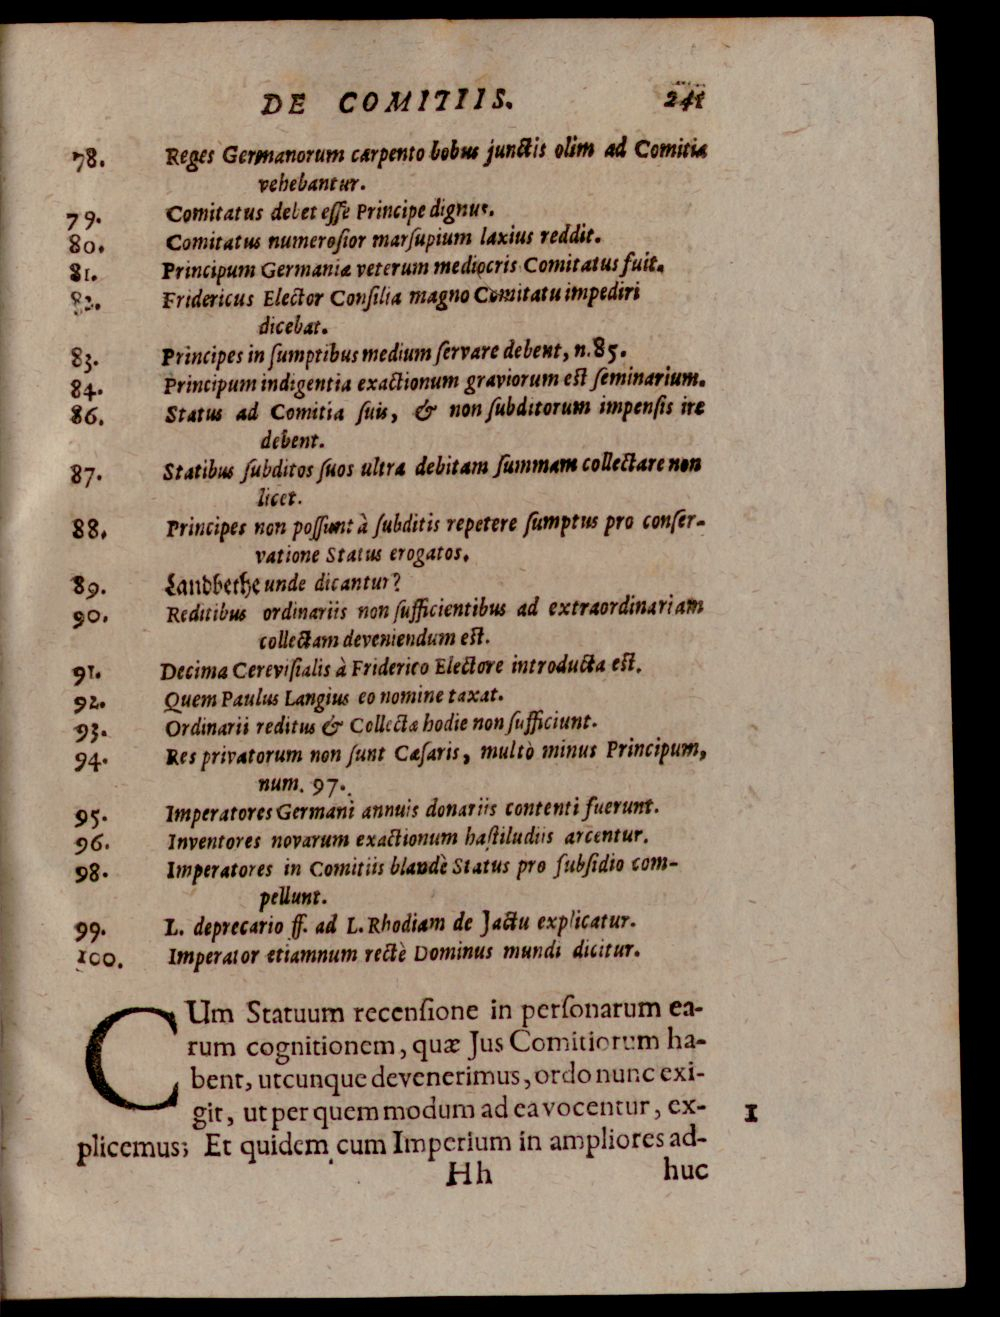 DE COMITIIS. 241
78. Reges Germanorum carpento bobus junctis olim ad Comitia
vehebantur.
79. Comitatus debet esse Principe dignus.
80. Comitatus numerosior marsupium laxius reddit.
81. Principum Germaniæ veterum mediocris Comitatus fuit.
82. Fridericus Elector Consilia magno Comitatu impediri
dicebat.
83. Principes in sumptibus medium servare debent, n.85.
84. Principum indigentia exactionum graviorum est seminarium.
86. Status ad Comitia suis, & non subditorum impensis ire
debent.
87. Statibus subditos suos ultra debitam summam collectare non
licet.
88. Principes non possunt à subditis repetere sumptus pro conser-
vatione Status erogatos.
89. Landbethe unde dicantur?
90. Reditibus ordinariis non sufficientibus ad extraordinariam
collectam deveniendum est.
91. Decima Cerevisialis à Friderico Electore introducta est.
92. Quem Paulus Langius eo nomine taxat.
93. Ordinarii reditus & Collectæ hodie non sufficiunt.
94. Res privatorum non sunt Cæsaris, multò minus Principum,
num. 97.
95. Imperatores Germani annuis donariis contenti fuerunt.
96. Inventores novarum exactionum hastiludiis arcentur.
98. Imperatores in Comitiis blandè Status pro subsidio com-
pellunt.
99. L. deprecario ff. ad L. Rhodiam de Jactu explicatur.
100. Imperator etiamnum rectè Dominus mundi dicitur.
CUm Statuum recensione in personarum ea-
rum cognitionem, quæ Jus Comitiorum ha-
bent, utcunque devenerimus, ordo nunc exi-
git, ut per quem modum ad ea vocentur, ex- 1
plicemus; Et quidem cum Imperium in ampliores ad-
Hh huc